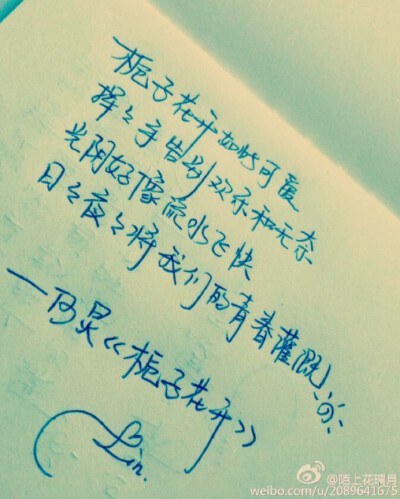 栀子花开如此可爱
挥々手告别欢乐和无奈
光阴好像流水飞快
日々夜々将我们的青春灌溉
——何炅《栀子花开》
Lin.
@陌上花璃月
weibo.com/u/2089641675